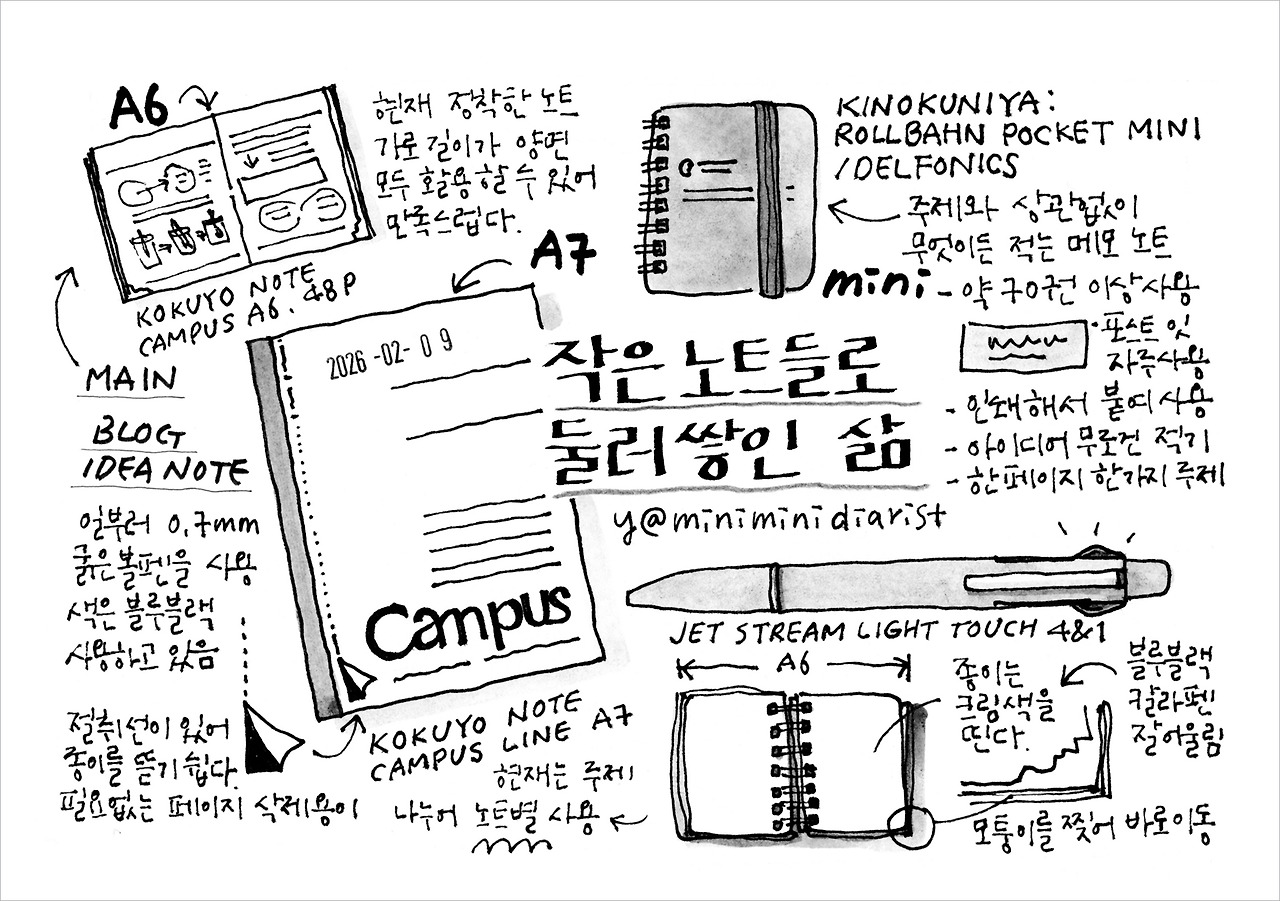 A6
현재 정착한 노트
가로 길이가 양면
모두 활용할 수 있어
만족스럽다.
KOKUYO NOTE
CAMPUS A6. 48P
MAIN
BLOG
IDEA NOTE
일부러 0.7mm
굵은 볼펜을 사용
색은 블루블랙
사용하고 있음
절취선이 있어
종이를 뜯기 쉽다.
필요없는 페이지 삭제용이
A7
2026-02-09
Campus
KOKUYO NOTE
CAMPUS LINE A7
현재는 주제
나누어 노트별 사용
작은 노트들로
둘러쌓인 삶
y@miniminidiarist
KINOKUNIYA:
ROLLBAHN POCKET MINI
/DELFONICS
주제와 상관없이
무엇이든 적는 메모 노트
mini - 약 70권 이상 사용
포스트잇
자주사용
- 인쇄해서 붙여 사용
- 아이디어 무조건 적기
- 한페이지 한가지 주제
JET STREAM LIGHT TOUCH 4&1
A6
종이는
크림색을
띤다.
블루블랙
칼라펜
잘어울림
모퉁이를 찢어 바로이동